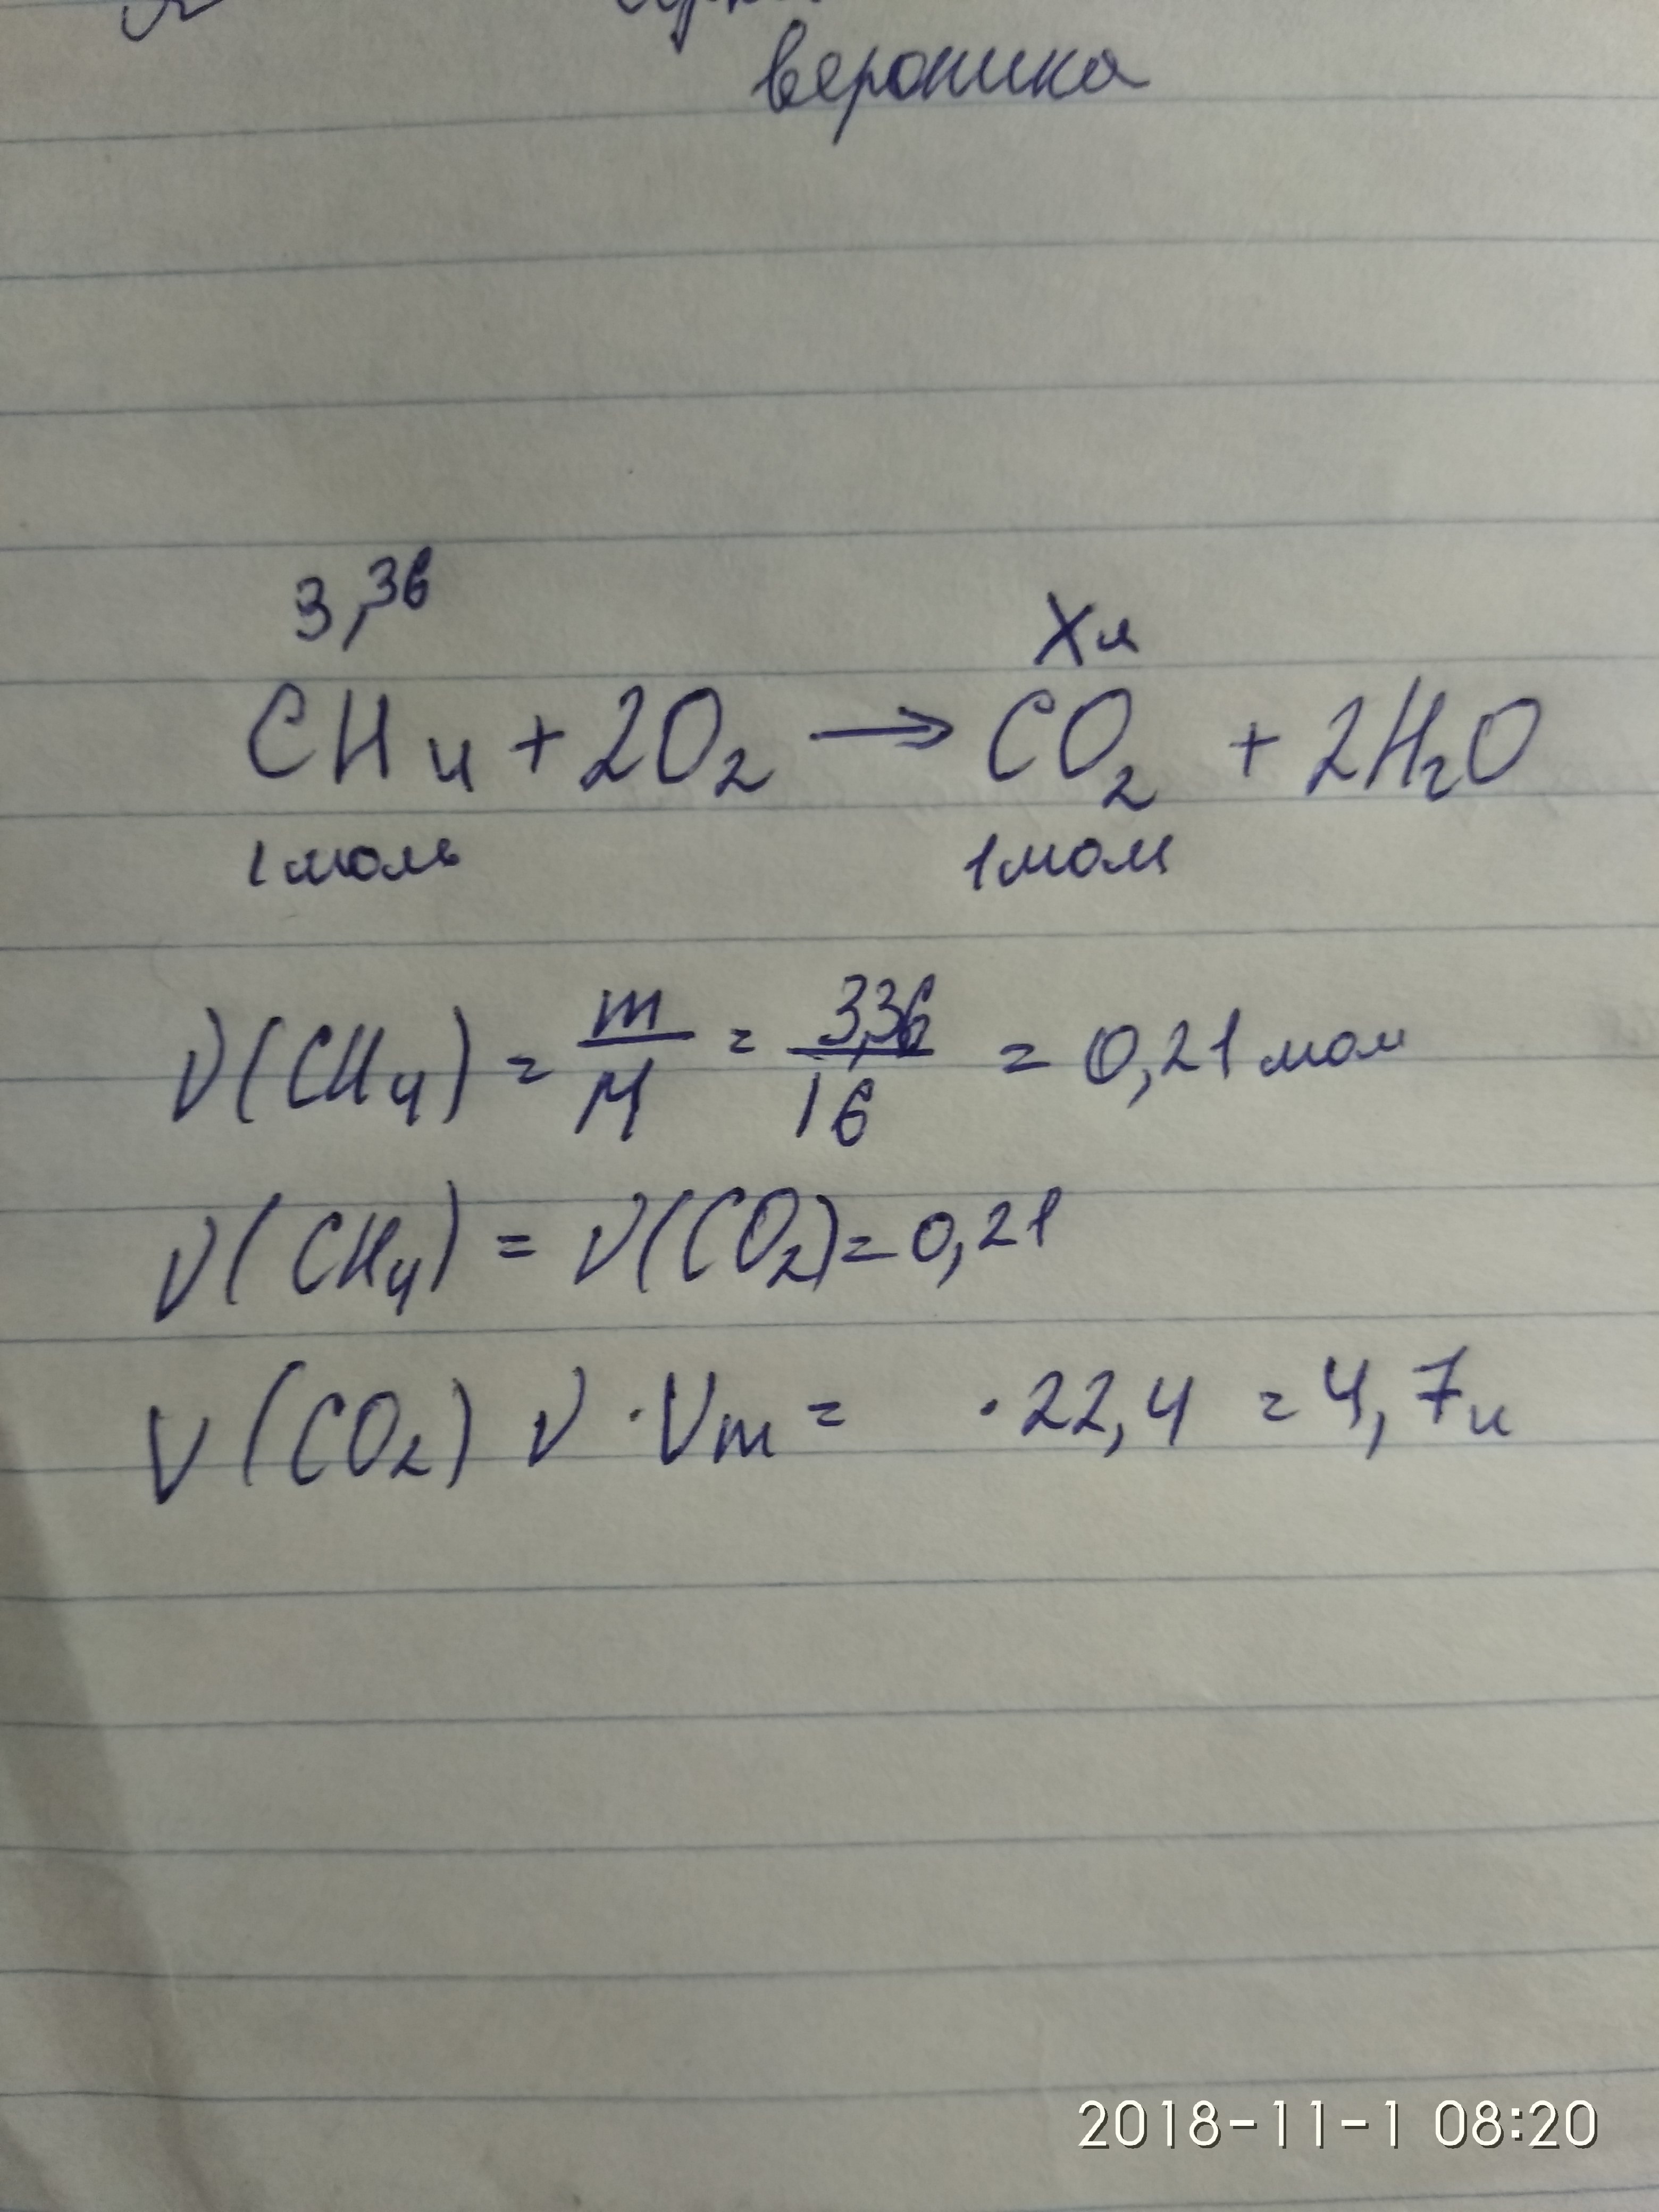 вероника
3,36
Xл
CH4 + 2O2 → CO2 + 2H2O
1 моль 1 моль
ν(CH4) = m/M = 3,36/16 = 0,21 моль
ν(CH4) = ν(CO2) = 0,21
V(CO2) ν · Vm = · 22,4 = 4,7 л
2018-11-1 08:20